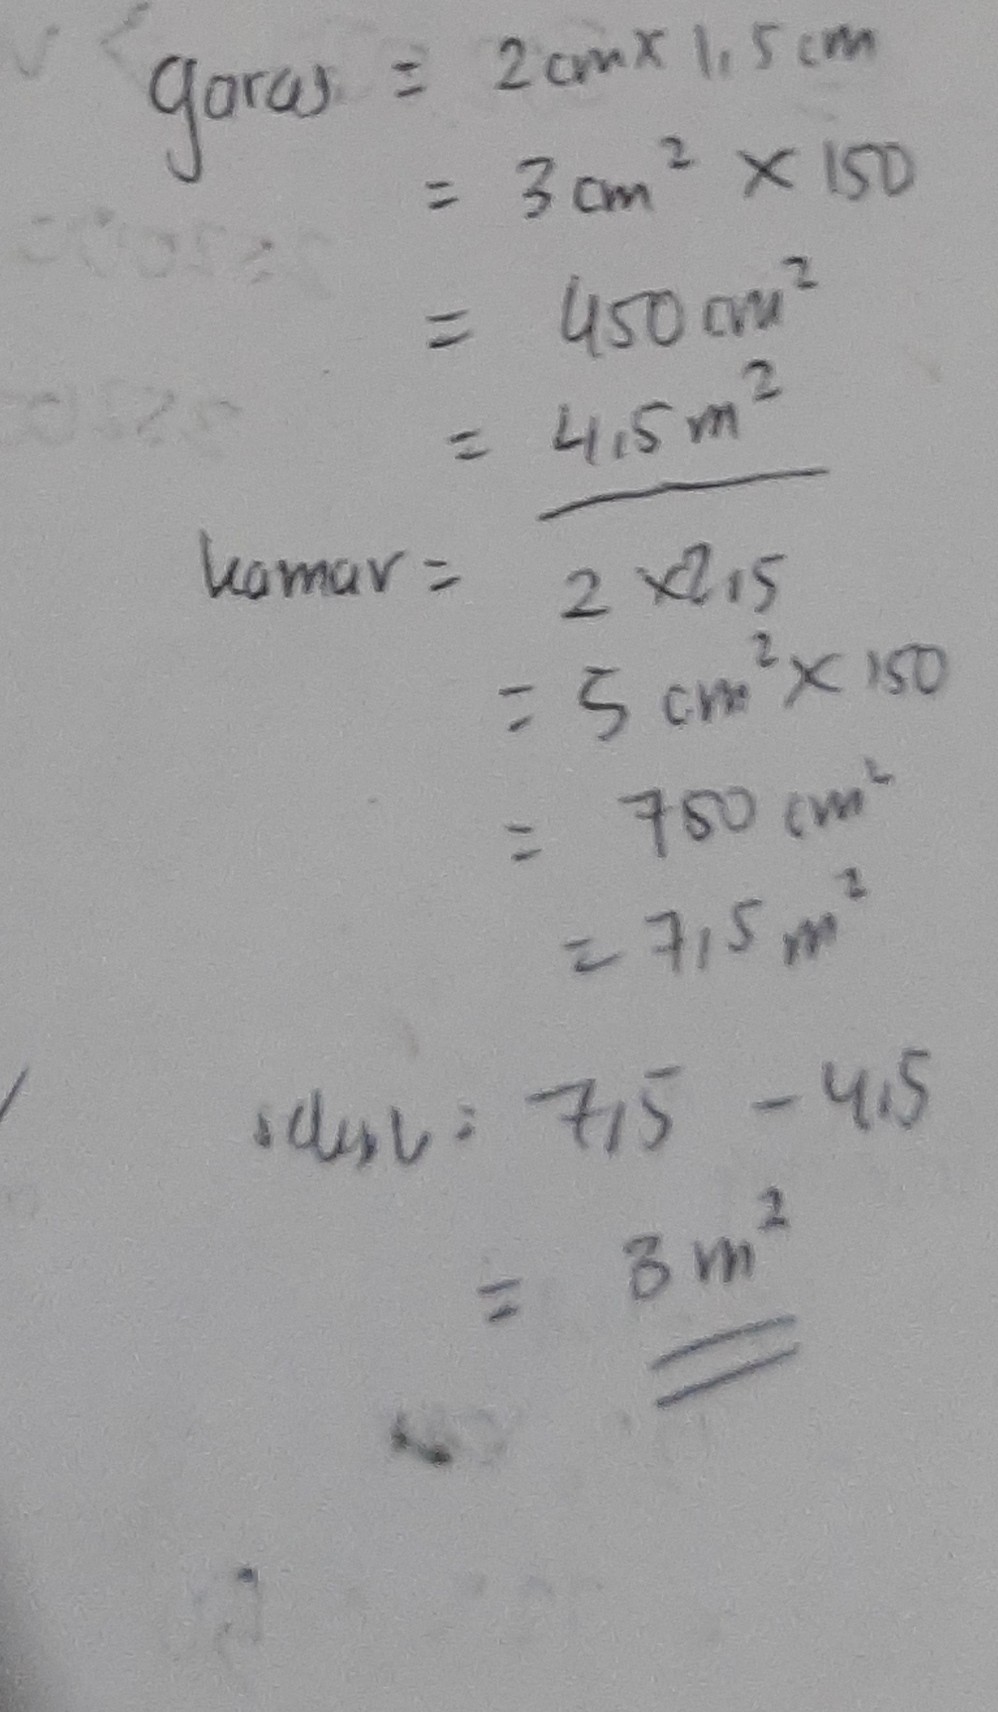 garas = 2 cm x 1,5 cm
= 3 cm² x 150
= 450 cm²
= 4,5 m²
kamar = 2 x 2,5
= 5 cm² x 150
= 750 cm²
= 7,5 m²
: 7,5 - 4,5
= 3 m²